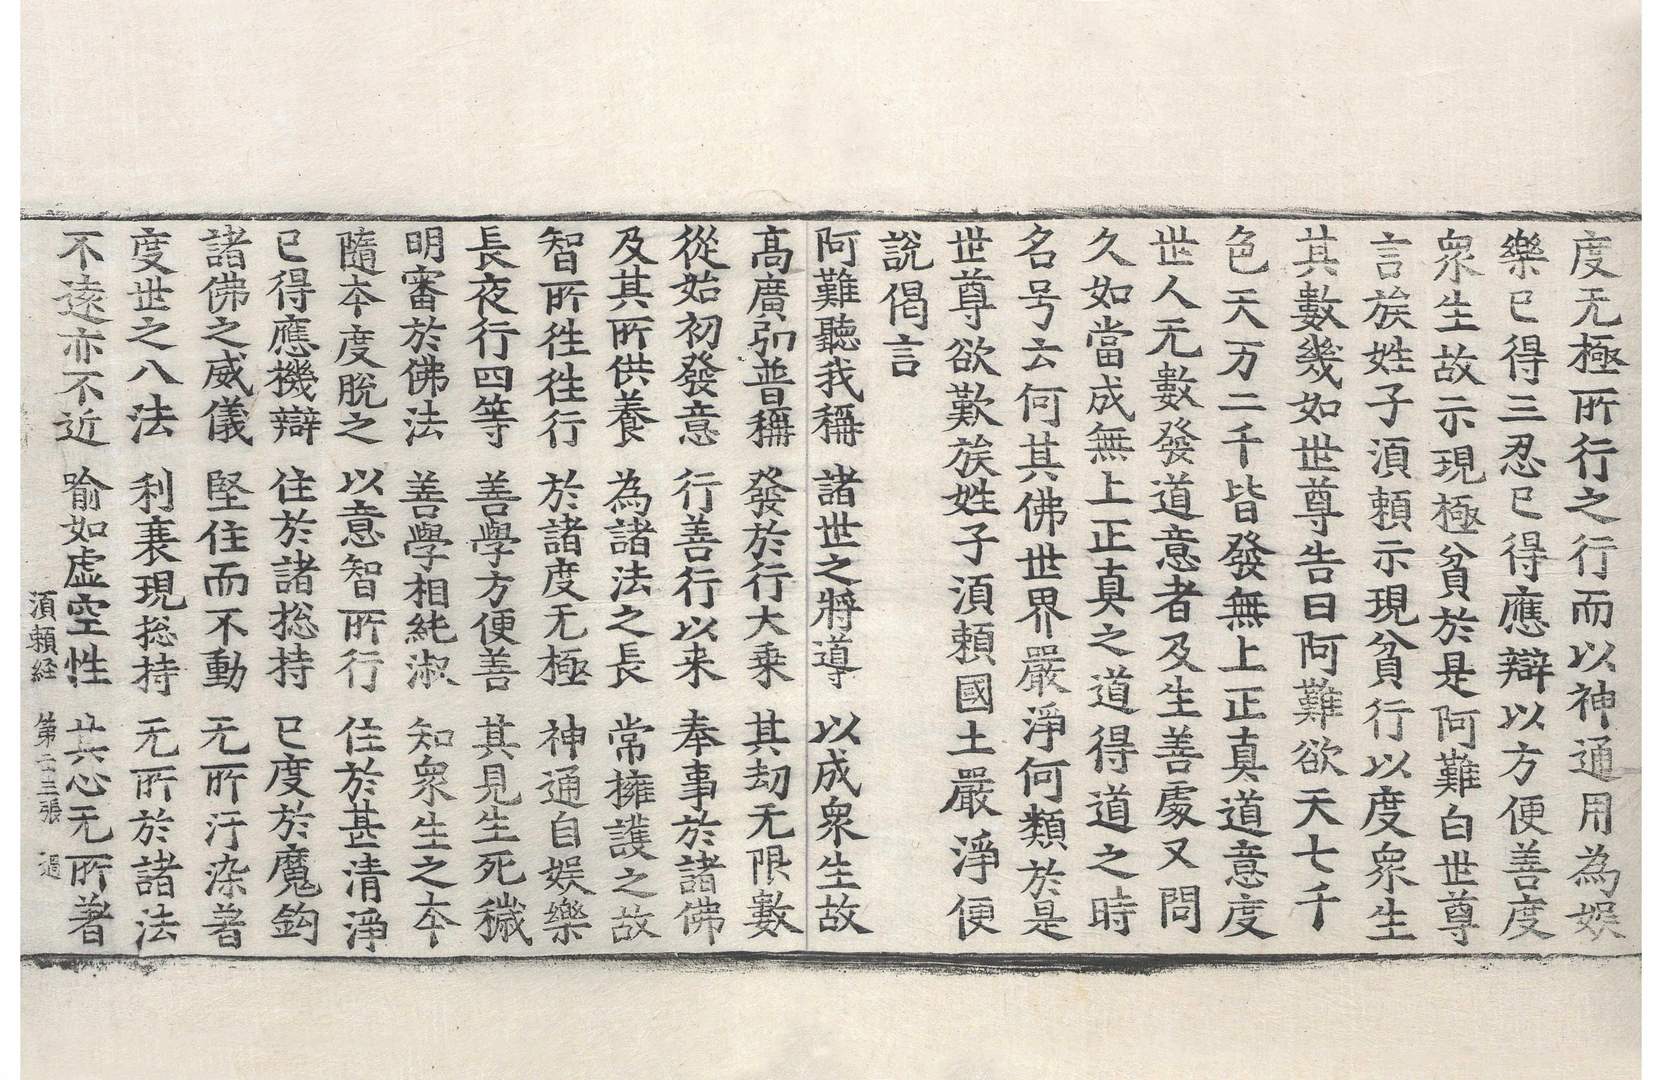 度无極所行之行而以神通用為娱
樂已得三忍已得應辯以方便善度
衆生故示現極貧於是阿難白世尊
言族姓子湏頼示現貧行以度衆生
其數幾如世尊告曰阿難欲天七千
色天万二千皆發無上正真道意度
世人无數發道意者及生善處又問
久如當成無上正真之道得道之時
名号云何其佛世界嚴淨何類於是
世尊欲歎族姓子湏頼國土嚴淨便
說偈言
阿難聽我稱 諸世之將導 以成衆生故
高廣弘普稱 發於行大乗 其劫无限數
從始初發意 行善行以来 奉事於諸佛
及其所供養 為諸法之長 常擁護之故
智所徃徃行 於諸度无極 神通自娱樂
長夜行四等 善學方便善 其見生死穢
明審於佛法 善學相純淑 知衆生之夲
隨夲度脫之 以意智所行 住於甚清淨
已得應機辯 住於諸捴持 已度於魔鈎
諸佛之威儀 堅住而不動 无所汙染著
度世之八法 利衰現捴持 无所於諸法
不遠亦不近 喻如虛空性 其心无所著
湏頼経 第二十三張 過